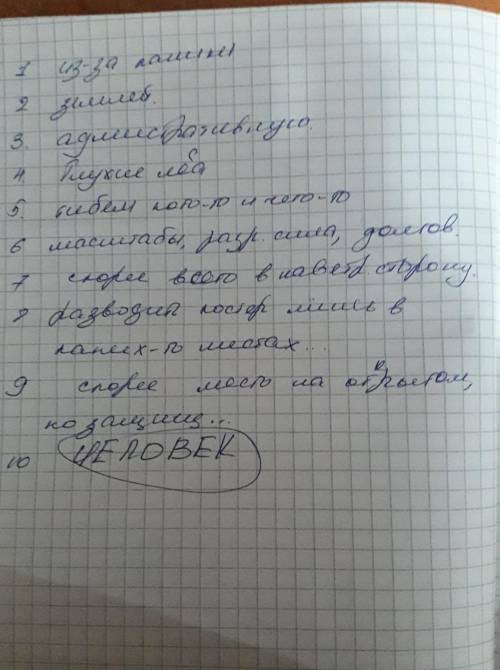 1 из-за
2 землет.
3. административную.
4. Глухие
5. гибели кого-то и чего-то
6 масштабы, разр. сила, долгов.
7 скорее всего в наветр. сторону.
8 разводить костер лишь в
каких-то местах...
9 скорее место на открытом,
но защищ...
10 ЧЕЛОВЕК